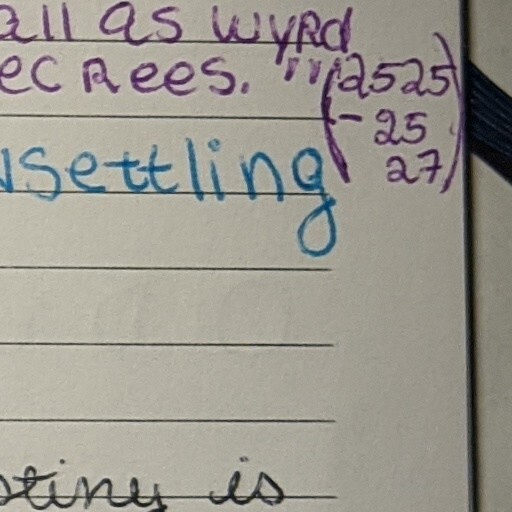 all as wyrd
ecrees." (2525
- 25
27)
settling
stiny is